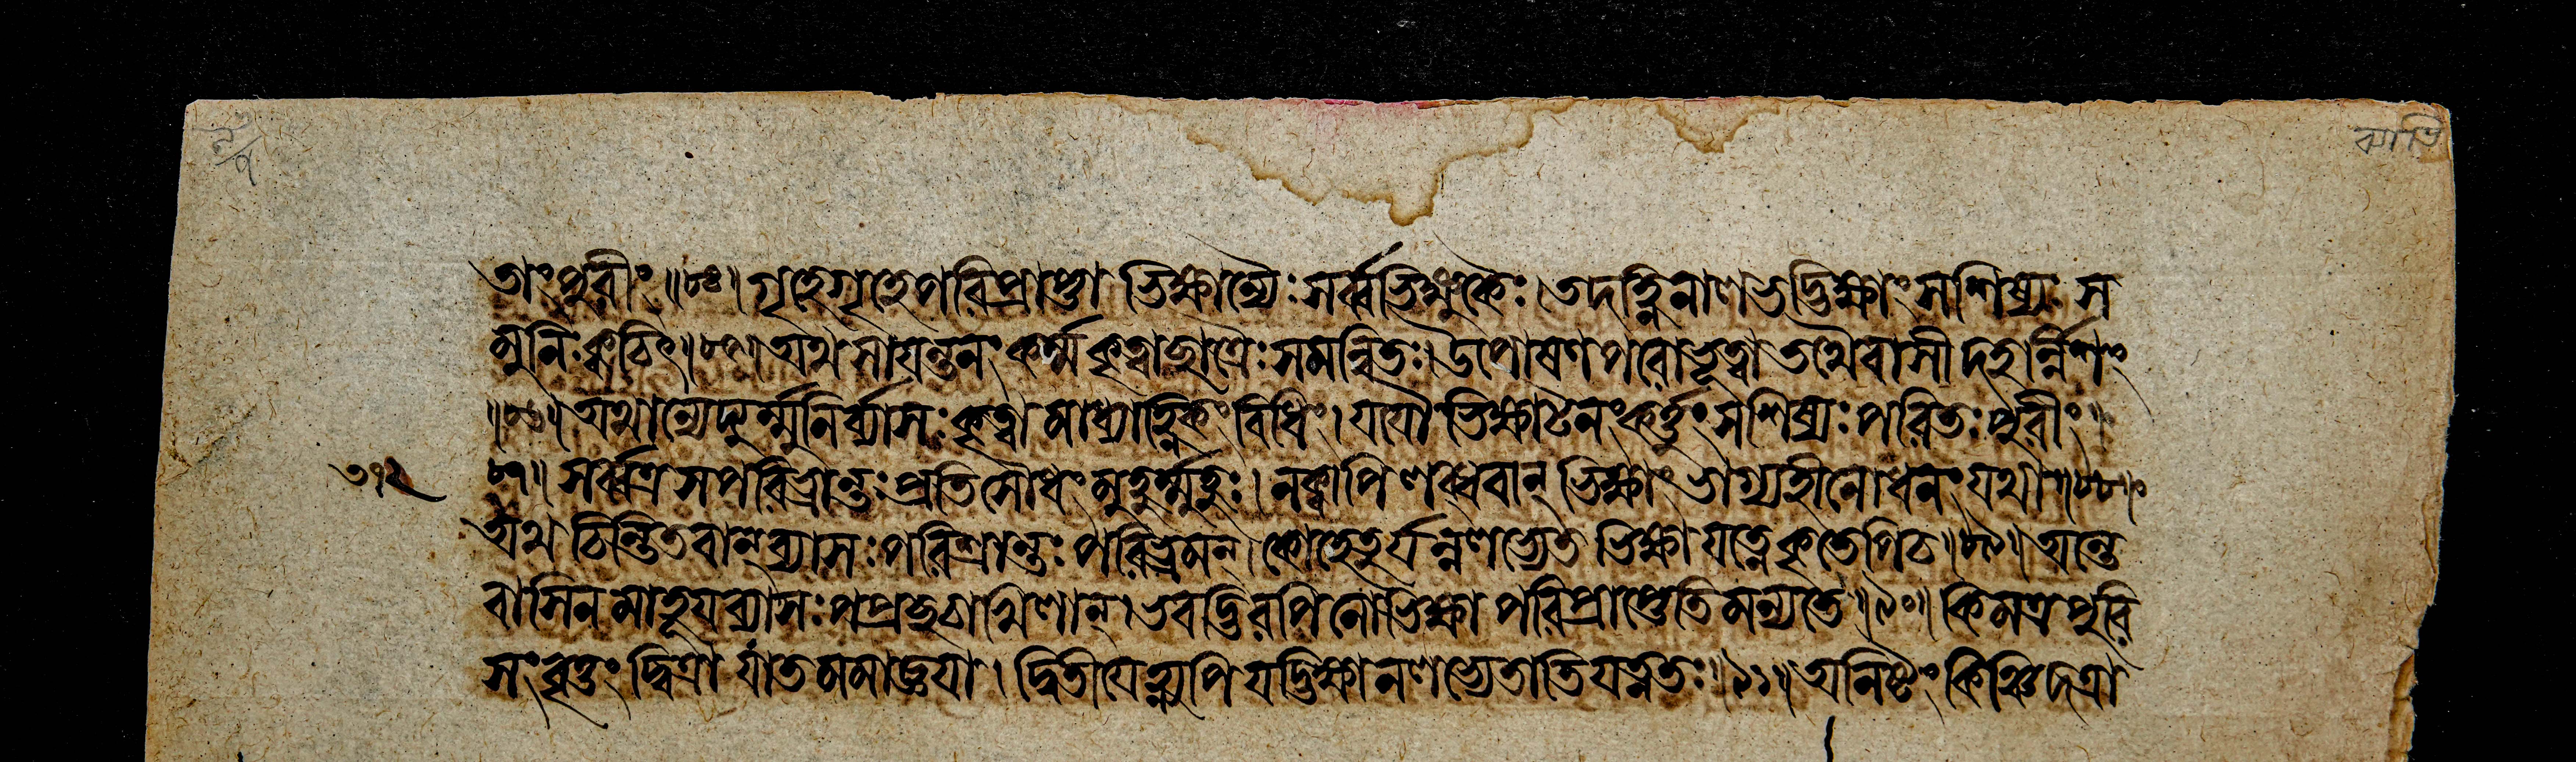 তাং পুরীং ॥৮৪॥ গৃহে গৃহে পরিপ্রাপ্তা ভিক্ষান্যৈঃ সর্ব্বভিক্ষুকৈঃ। তদহ্নি নালভদ্ভিক্ষাং সশিষ্যঃ স
মুনিঃ ক্বচিৎ॥৮৫॥ অথ সাযন্তনং কর্ম্ম কৃত্বা ছাত্রৈঃ সমন্বিতঃ। উপোষণপরো ভূত্বা তথৈবাসীদহর্ন্নিশং
॥৮৬॥ অথান্যেদ্যুর্ম্মুনির্ব্যাসঃ কৃত্বা মাধ্যাহ্নিকং বিধিং। যযৌ ভিক্ষাটনং কর্ত্তুং সশিষ্যঃ পরিতঃ পুরীং॥
৮৭॥ সর্ব্বত্র স পরিভ্রান্তঃ প্রতিসৌধং মুহুর্ম্মুহুঃ। ন ক্বাপি লব্ধবান্ ভিক্ষাং ভাগ্যহীনো ধনং যথা॥৮৮॥
অথ চিন্তিতবান্ ব্যাসঃ পরিশ্রান্তঃ পরিভ্রমন্। কো হেতুর্যন্ন লভ্যেত ভিক্ষা যত্নে কৃতেপি চ॥৮৯॥ অন্তে
বাসিন মাহূয ব্যাসঃ পপ্রচ্ছ চাখিলান্। ভবদ্ভিরপি নো ভিক্ষা পরিপ্রাপ্তেতি মন্যতে॥৯০॥ কিমত্র পুরি
সংবৃত্তং দ্বিত্রা যাত মমাজ্ঞযা। দ্বিতীযেহ্ন্যপি যদ্ভিক্ষা ন লভ্যেতাতিযত্নতঃ॥৯১॥ অনিষ্টং কিঞ্চিদত্রা